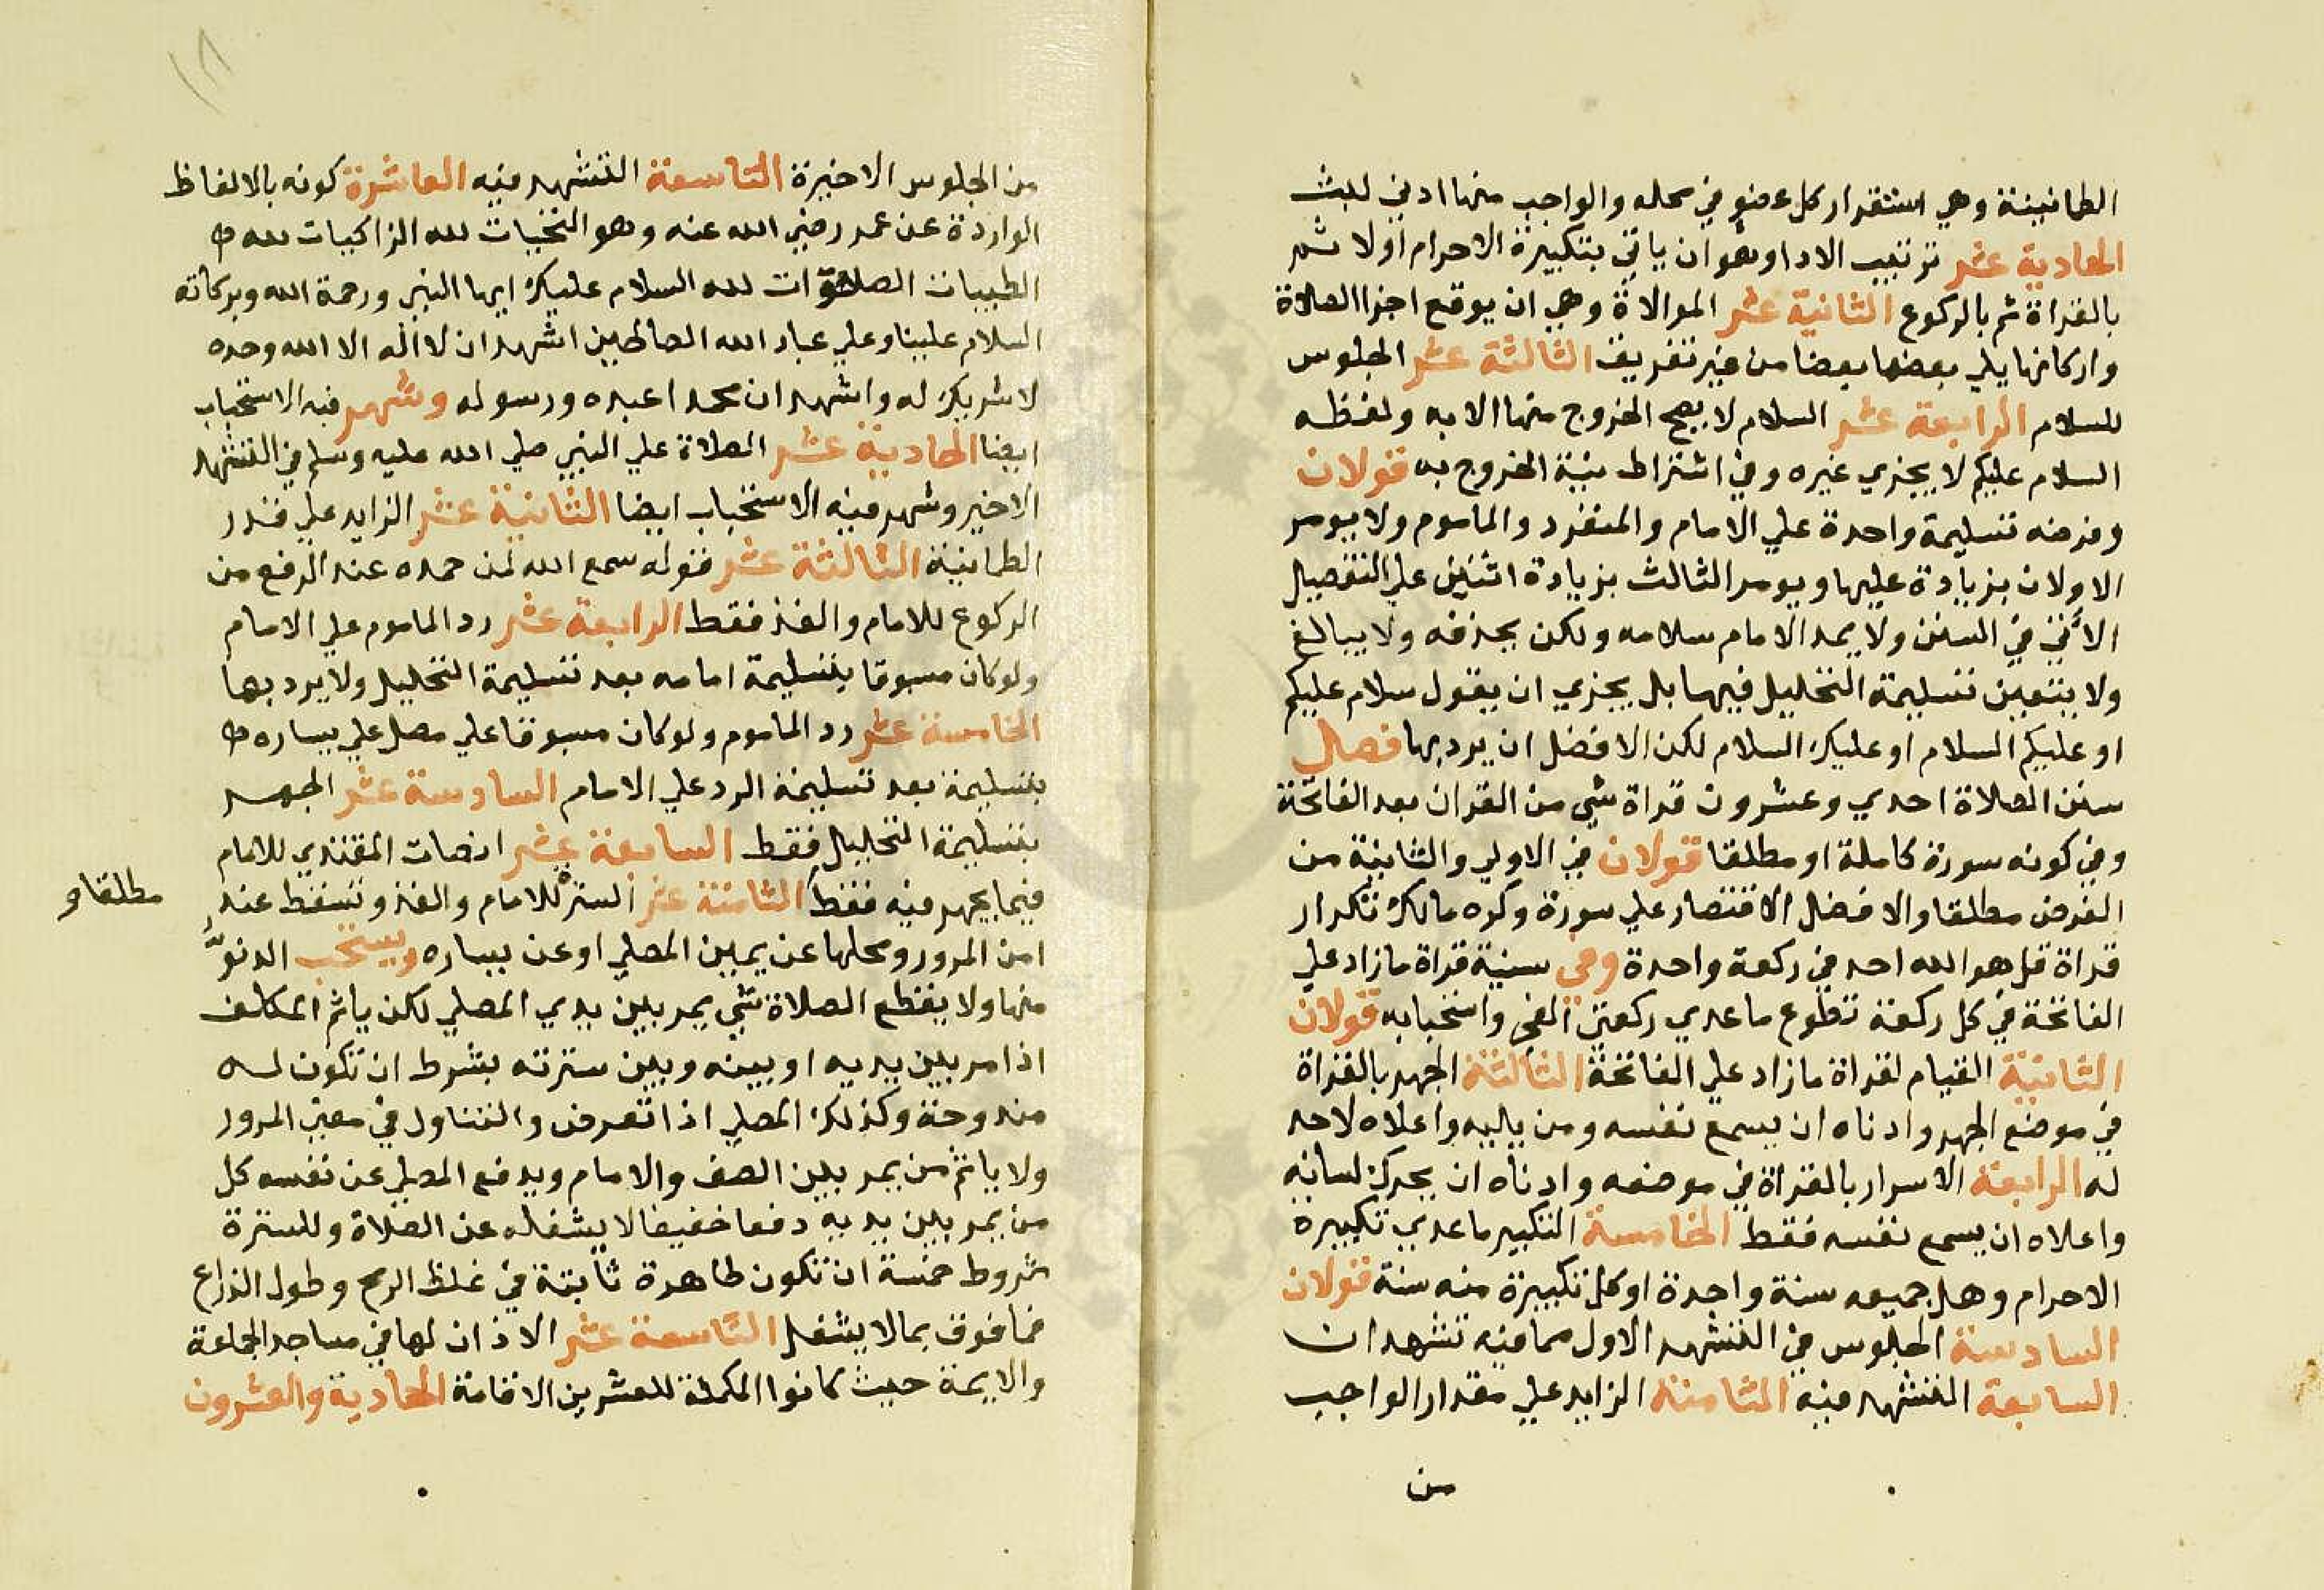 الطمانينة وهي استقرار كل عضو في محله والواجب منها ادني لبث
الحادية عشر ترتيب الاداوهو ان ياتي بتكبيرة الاحرام اولا ثم
بالقراة ثم بالركوع الثانية عشر الموالاة وهي ان يوقع اجزا الصلاة
واركانها يلي بعضها بعضا من غير تفريق الثالثة عشر الجلوس
للسلام الرابعة عشر السلام لا يصح الخروج منها الا به ولفظه
السلام عليكم لا يجزي غيره وفي اشتراط نية الخروج به قولان
وفرضه تسليمة واحدة علي الامام والمنفرد والماموم ولا يومر
الاولان بزيادة عليها ويومر الثالث بزيادة اثنتين علي التفصيل
الأتي في السنن ولا يمد الامام سلامه ولكن يحذفه ولا يبالغ
ولا يتعين تسليمة التحليل فيها بل يجزي ان يقول سلام عليكم
او عليكم السلام او عليك السلام لكن الافضل ان يرد بها فصل
سنن الصلاة احدي وعشرون قراة شي من القران بعد الفاتحة
وفي كونه سورة كاملة او مطلقا قولان في الاولي والثانية من
الفرض مطلقا والافضل الاقتصار علي سورة وكره مالك تكرار
قراة قل هو الله احد في ركعة واحدة وفي سنية قراة ما زاد علي
الفاتحة في كل ركعة تطوع ما عدي ركعتي الفجر واستحبابه قولان
الثانية القيام لقراة ما زاد علي الفاتحة الثالثة الجهر بالقراة
في موضع الجهر وادناه ان يسمع نفسه ومن يليه واعلاه لا حد
له الرابعة الاسرار بالقراة في موضعه وادناه ان يحرك لسانه
واعلاه ان يسمع نفسه فقط الخامسة التكبير ما عدي تكبيرة
الاحرام وهل جميعه سنة واحدة او كل تكبيرة منه سنة قولان
السادسة الجلوس في التشهد الاول مما فيه تشهدان
السابعة التشهد فيه الثامنة الزايد علي مقدار الواجب
من
١٨
من الجلوس الاخيرة التاسعة التشهد فيه العاشرة كونه بالالفاظ
الواردة عن عمر رضي الله عنه وهو التحيات لله الزاكيات لله
الطيبات الصلوات لله السلام عليك ايها النبي ورحمة الله وبركاته
السلام علينا وعلي عباد الله الصالحين اشهد ان لا اله الا الله وحده
لا شريك له واشهد ان محمدا عبده ورسوله وشهر فيه الاستحباب
ايضا الحادية عشر الصلاة علي النبي صلي الله عليه وسلم في التشهد
الاخير وشهر فيه الاستحباب ايضا الثانية عشر الزايد علي قدر
الطمانينة الثالثة عشر قوله سمع الله لمن حمده عند الرفع من
الركوع للامام والفذ فقط الرابعة عشر رد الماموم علي الامام
ولو كان مسبوقا بتسليمة امامه بعد تسليمة التحليل ولا يرد بها
الخامسة عشر رد الماموم ولو كان مسبوقا علي مصل علي يساره
بتسليمة بعد تسليمة الرد علي الامام السادسة عشر الجهر
بتسليمة التحليل فقط السابعة عشر انصات المقتدي للامام
فيما يجهر فيه فقط الثامنة عشر السترة للامام والفذ وتسقط عند
مطلقا و
امن المرور ومحلها عن يمين المصلي او عن يساره ويستحب الدنو
منها ولا يقطع الصلاة شي يمر بين يدي المصلي لكن ياثم المكلف
اذا مر بين يديه او بينه وبين سترته بشرط ان تكون له
مندوحة وكذلك المصلي اذا تعرض والتناول في معني المرور
ولا ياثم من يمر بين الصف والامام ويدفع المصلي عن نفسه كل
من يمر بين يديه دفعا خفيفا لا يشغله عن الصلاة وللسترة
شروط خمسة ان تكون طاهرة ثابتة في غلظ الرمح وطول الذراع
فما فوق بما لا يشغل التاسعة عشر الاذان لها في مساجد الجماعة
والايمة حيث كانوا المكملة للعشرين الاقامة الحادية والعشرون